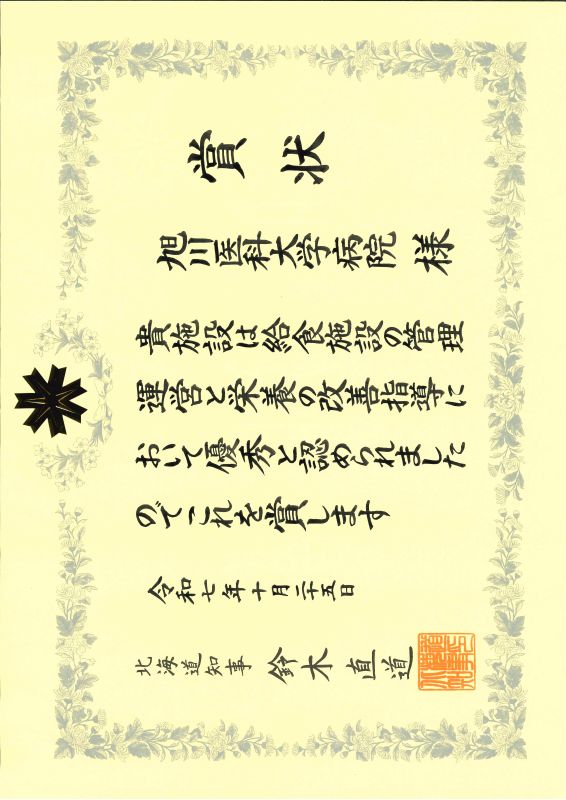 賞状
旭川医科大学病院 様
貴施設は給食施設の管理
運営と栄養の改善指導に
おいて優秀と認められました
のでこれを賞します
令和七年十月二十五日
北海道知事 鈴木 直道